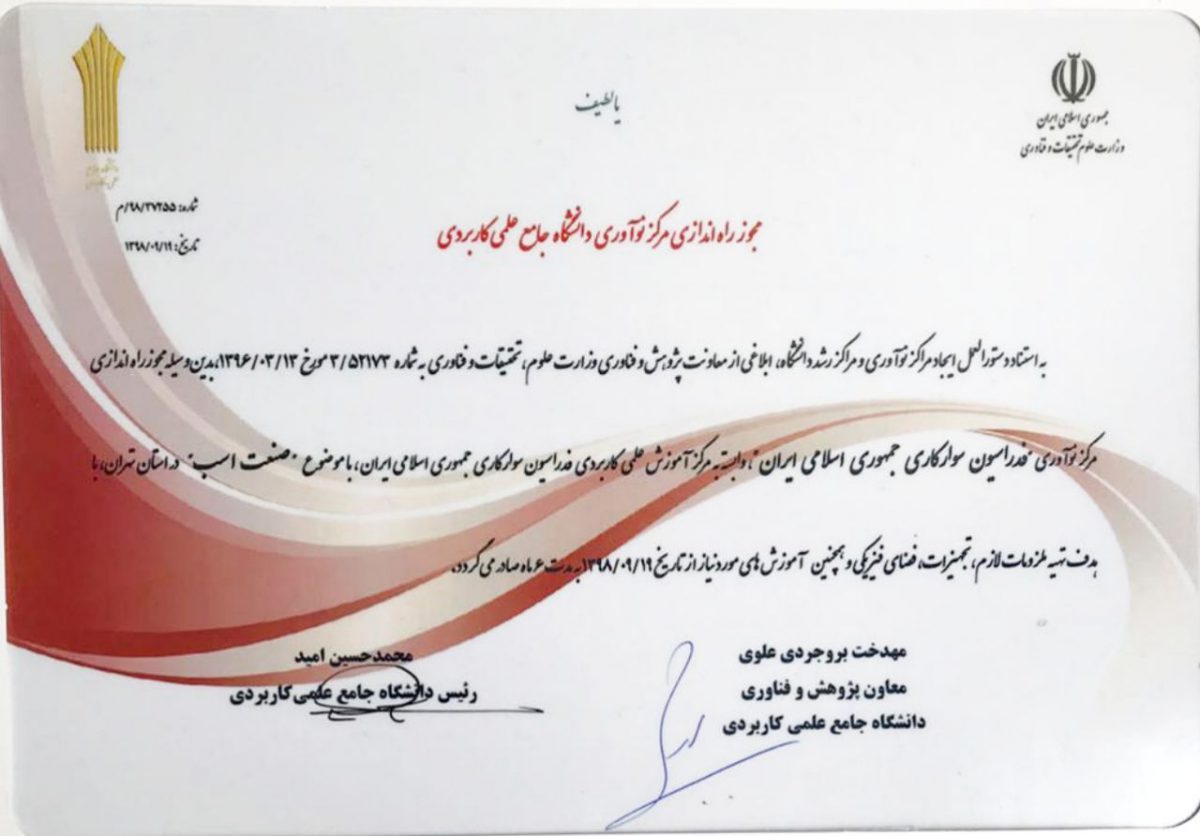 یا لطیف
جمهوری اسلامی ایران
وزارت علوم تحقیقات و فناوری
شماره: ۹۸/۳۷۲۵۵/م
تاریخ: ۱۳۹۸/۰۹/۱۹
مجوز راه اندازی مرکز نوآوری دانشگاه جامع علمی کاربردی
به استناد دستورالعمل ایجاد مراکز نوآوری و مراکز رشد دانشگاه، ابلاغی از معاونت پژوهش و فناوری وزارت علوم، تحقیقات و فناوری به شماره ۳/۵۲۱۷۳ مورخ ۱۳۹۶/۰۳/۱۳، بدین وسیله مجوز راه اندازی
مرکز نوآوری "فدراسیون سوارکاری جمهوری اسلامی ایران"، وابسته به مرکز آموزش علمی کاربردی فدراسیون سوارکاری جمهوری اسلامی ایران، با موضوع "صنعت اسب" در استان تهران، با
هدف تهیه ملزومات لازم، تجهیزات، فضای فیزیکی و همچنین آموزش های مورد نیاز از تاریخ ۱۳۹۸/۰۹/۱۹ به مدت ۶ ماه صادر می گردد.
مهدخت بروجردی علوی
معاون پژوهش و فناوری
دانشگاه جامع علمی کاربردی
محمدحسین امید
رئیس دانشگاه جامع علمی کاربردی